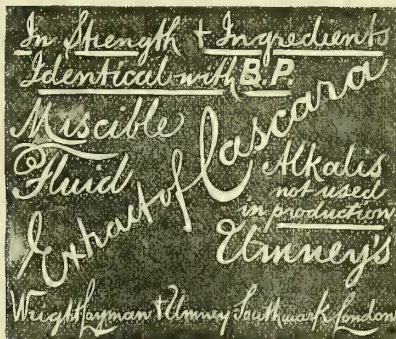 In Strength + Ingredients
Identical with B.P
Miscible
Fluid
Extract of Cascara
Alkalis
not used
in production
Umney's
Wright Layman + Umney Southwark London